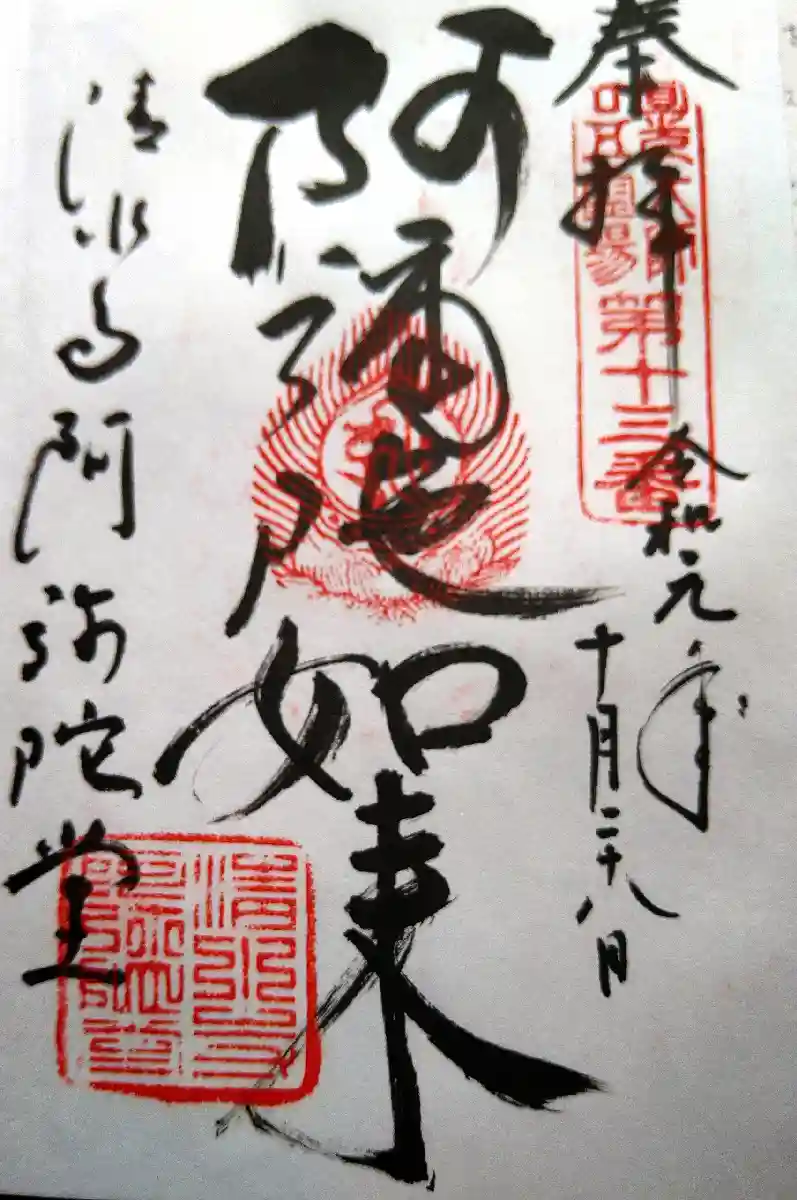 奉拝
圓光大師
第十三番
令和元年
十月二十八日
阿彌陀如来
清水寺阿弥陀堂